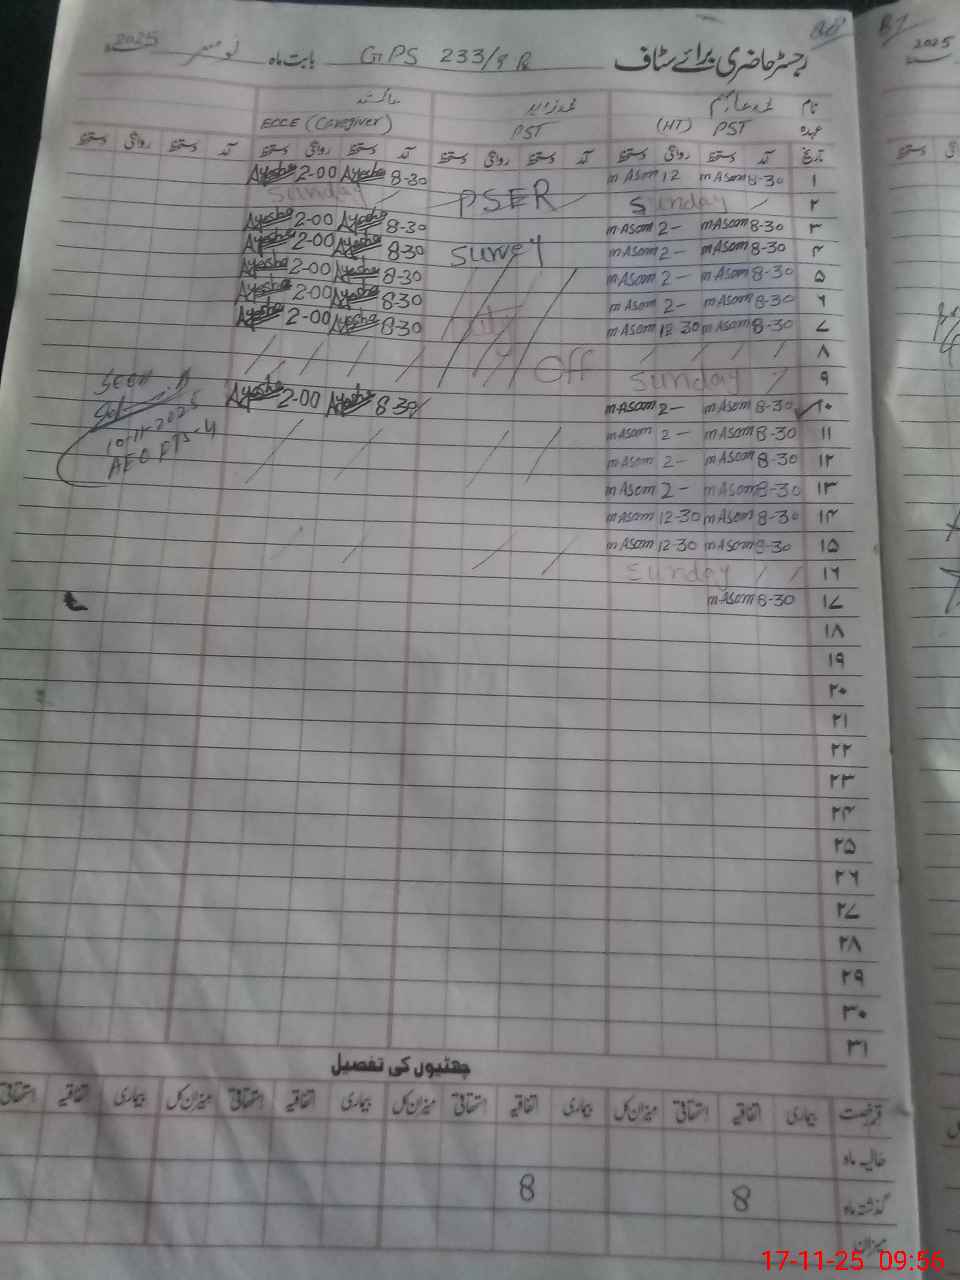 رجسٹر حاضری برائے سٹاف GPS 233/9R بابت ماہ نومبر 2025
2025
نام
عہدہ PST (HT) PST ECCE (Caregiver)
تاریخ آمد دستخط روانگی دستخط آمد دستخط روانگی دستخط آمد دستخط روانگی دستخط آمد دستخط روانگی دستخط
۱ 8-30 mAsom 12 mAsom 8-30 Ayesha 2-00 Ayesha
۲ Sunday PSER Sunday
۳ 8-30 mAsom 2- mAsom 8-30 Ayesha 2-00 Ayesha
۴ 8-30 mAsom 2- mAsom Survey 8-30 Ayesha 2-00 Ayesha
۵ 8-30 mAsom 2- mAsom 8-30 Ayesha 2-00 Ayesha
۶ 8-30 mAsom 2- mAsom 8-30 Ayesha 2-00 Ayesha
۷ 8-30 mAsom 12-30 mAsom 8-30 Ayesha 2-00 Ayesha
۸
۹ Sunday Off
۱۰ 8-30 mAsom 2- mAsom 8-30 Ayesha 2-00 Ayesha
Seen
10-11-2025
AEO
۱۱ 8-30 mAsom 2- mAsom
۱۲ 8-30 mAsom 2- mAsom
۱۳ 8-30 mAsom 2- mAsom
۱۴ 8-30 mAsom 12-30 mAsom
۱۵ 8-30 mAsom 12-30 mAsom
۱۶ Sunday
۱۷ 8-30 mAsom
۱۸
۱۹
۲۰
۲۱
۲۲
۲۳
۲۴
۲۵
۲۶
۲۷
۲۸
۲۹
۳۰
۳۱
چھٹیوں کی تفصیل
قسم رخصت بیماری اتفاقیہ استحقاقی میزان کل بیماری اتفاقیہ استحقاقی میزان کل بیماری اتفاقیہ استحقاقی میزان کل بیماری اتفاقیہ استحقاقی
حالیہ ماہ
گذشتہ ماہ 8 8
میزان
17-11-25 09:56